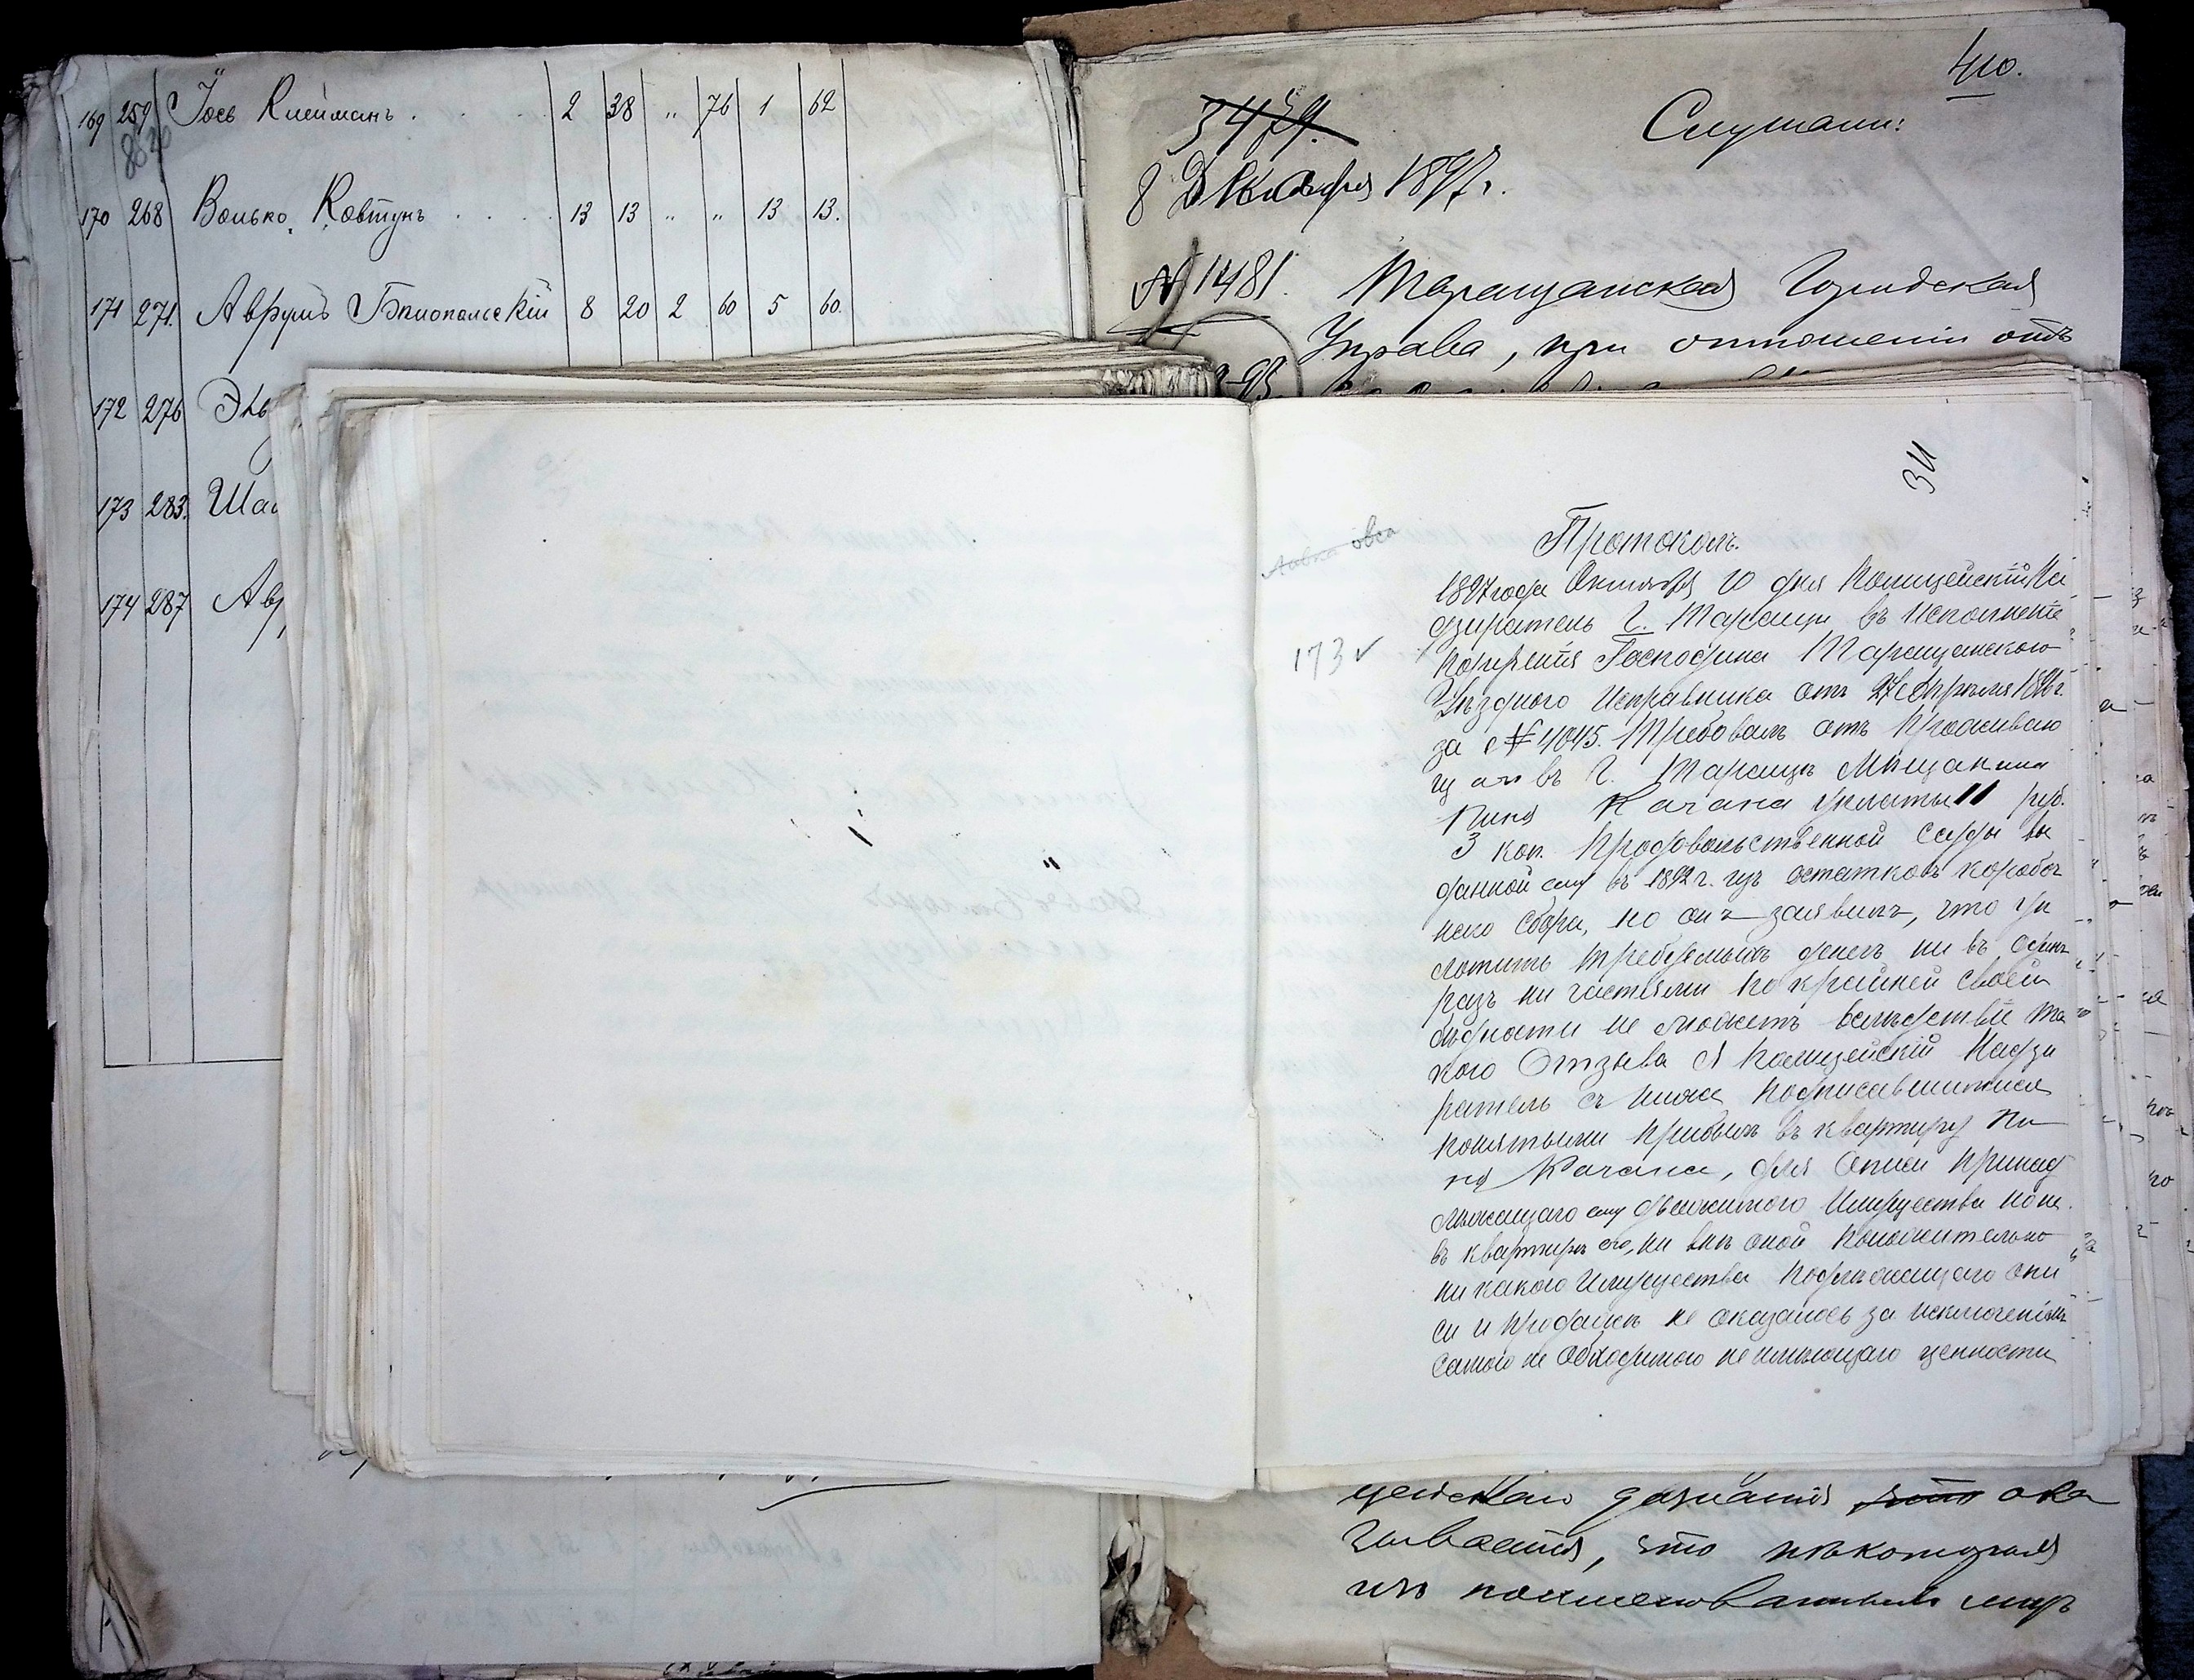 169 259 Іось Клейманъ . . . . 2 38 " 76 1 62
170 268 Волько Ковтунъ . . . . 13 13 " " 13 13.
171 271. Аврумъ Бѣлопольскій 8 20 2 60 5 60.
172 276
173 283. Ша
174 287 Ав
410.
3479.
Слушали:
8 Декабря 1897 г.
№ 1481. Таращанская Городская
Управа, при отношеніи отъ
34
Протоколъ.
овса
173 ✓
1897 года Октября 10 дня Полицейскій На
дзиратель г. Таращи въ исполненіе
порученія Господина Таращанскаго
Уѣзднаго Исправника отъ 27 Апрѣля 1896 г.
за № 4045. Требовалъ отъ проживаю
щаго въ г. Таращѣ Мѣщанина
Пини Качана уплаты 11 руб.
3 коп. продовольственной ссуды вы
данной ему въ 1892 г. изъ остатковъ коробоч
наго сбора, но онъ заявилъ, что уп
латить требуемыхъ денегъ ни въ одинъ
разъ ни частями по крайней своей
бѣдности не можетъ вслѣдствіе та
кого Отзыва Я Полицейскій Надзи
ратель съ ниже подписавшимися
понятыми прибылъ въ квартиру Пи
ни Качана, для Описи принад
лежащаго ему движимого Имущества но ни
въ квартирѣ его, ни внѣ оной положительно
ни какого Имущества подлежащаго опи
си и продажѣ не оказалось за исключеніемъ
самого не обходимого не имѣющаго ценности
цейскаго дознанія что ока
зывается, что нѣкоторыя
изъ поименованныхъ лицъ